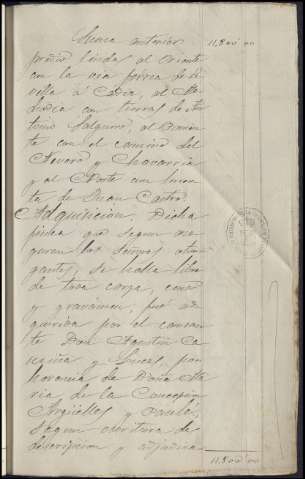 anterior 11.800 00
predio linda al Oriente
con la via férrea de Se-
villa á Cadiz, al Me-
diodia con tierras de An-
tonio Salguero, al Ponien-
te con el camino del
y Chavarria
y al Norte con huer-
ta de Juan Castro
Adquisicion. Dicha
finca que segun ase-
guran los Señores otor-
gantes, se halla libre
de toda carga, censo
y gravamen, fué ad-
quirida por el causan-
te Don Agustin
y por
herencia de Doña Ma-
ria de la Concepcion
Argüelles y
segun escritura de
descripcion y adjudica-
11.800 00